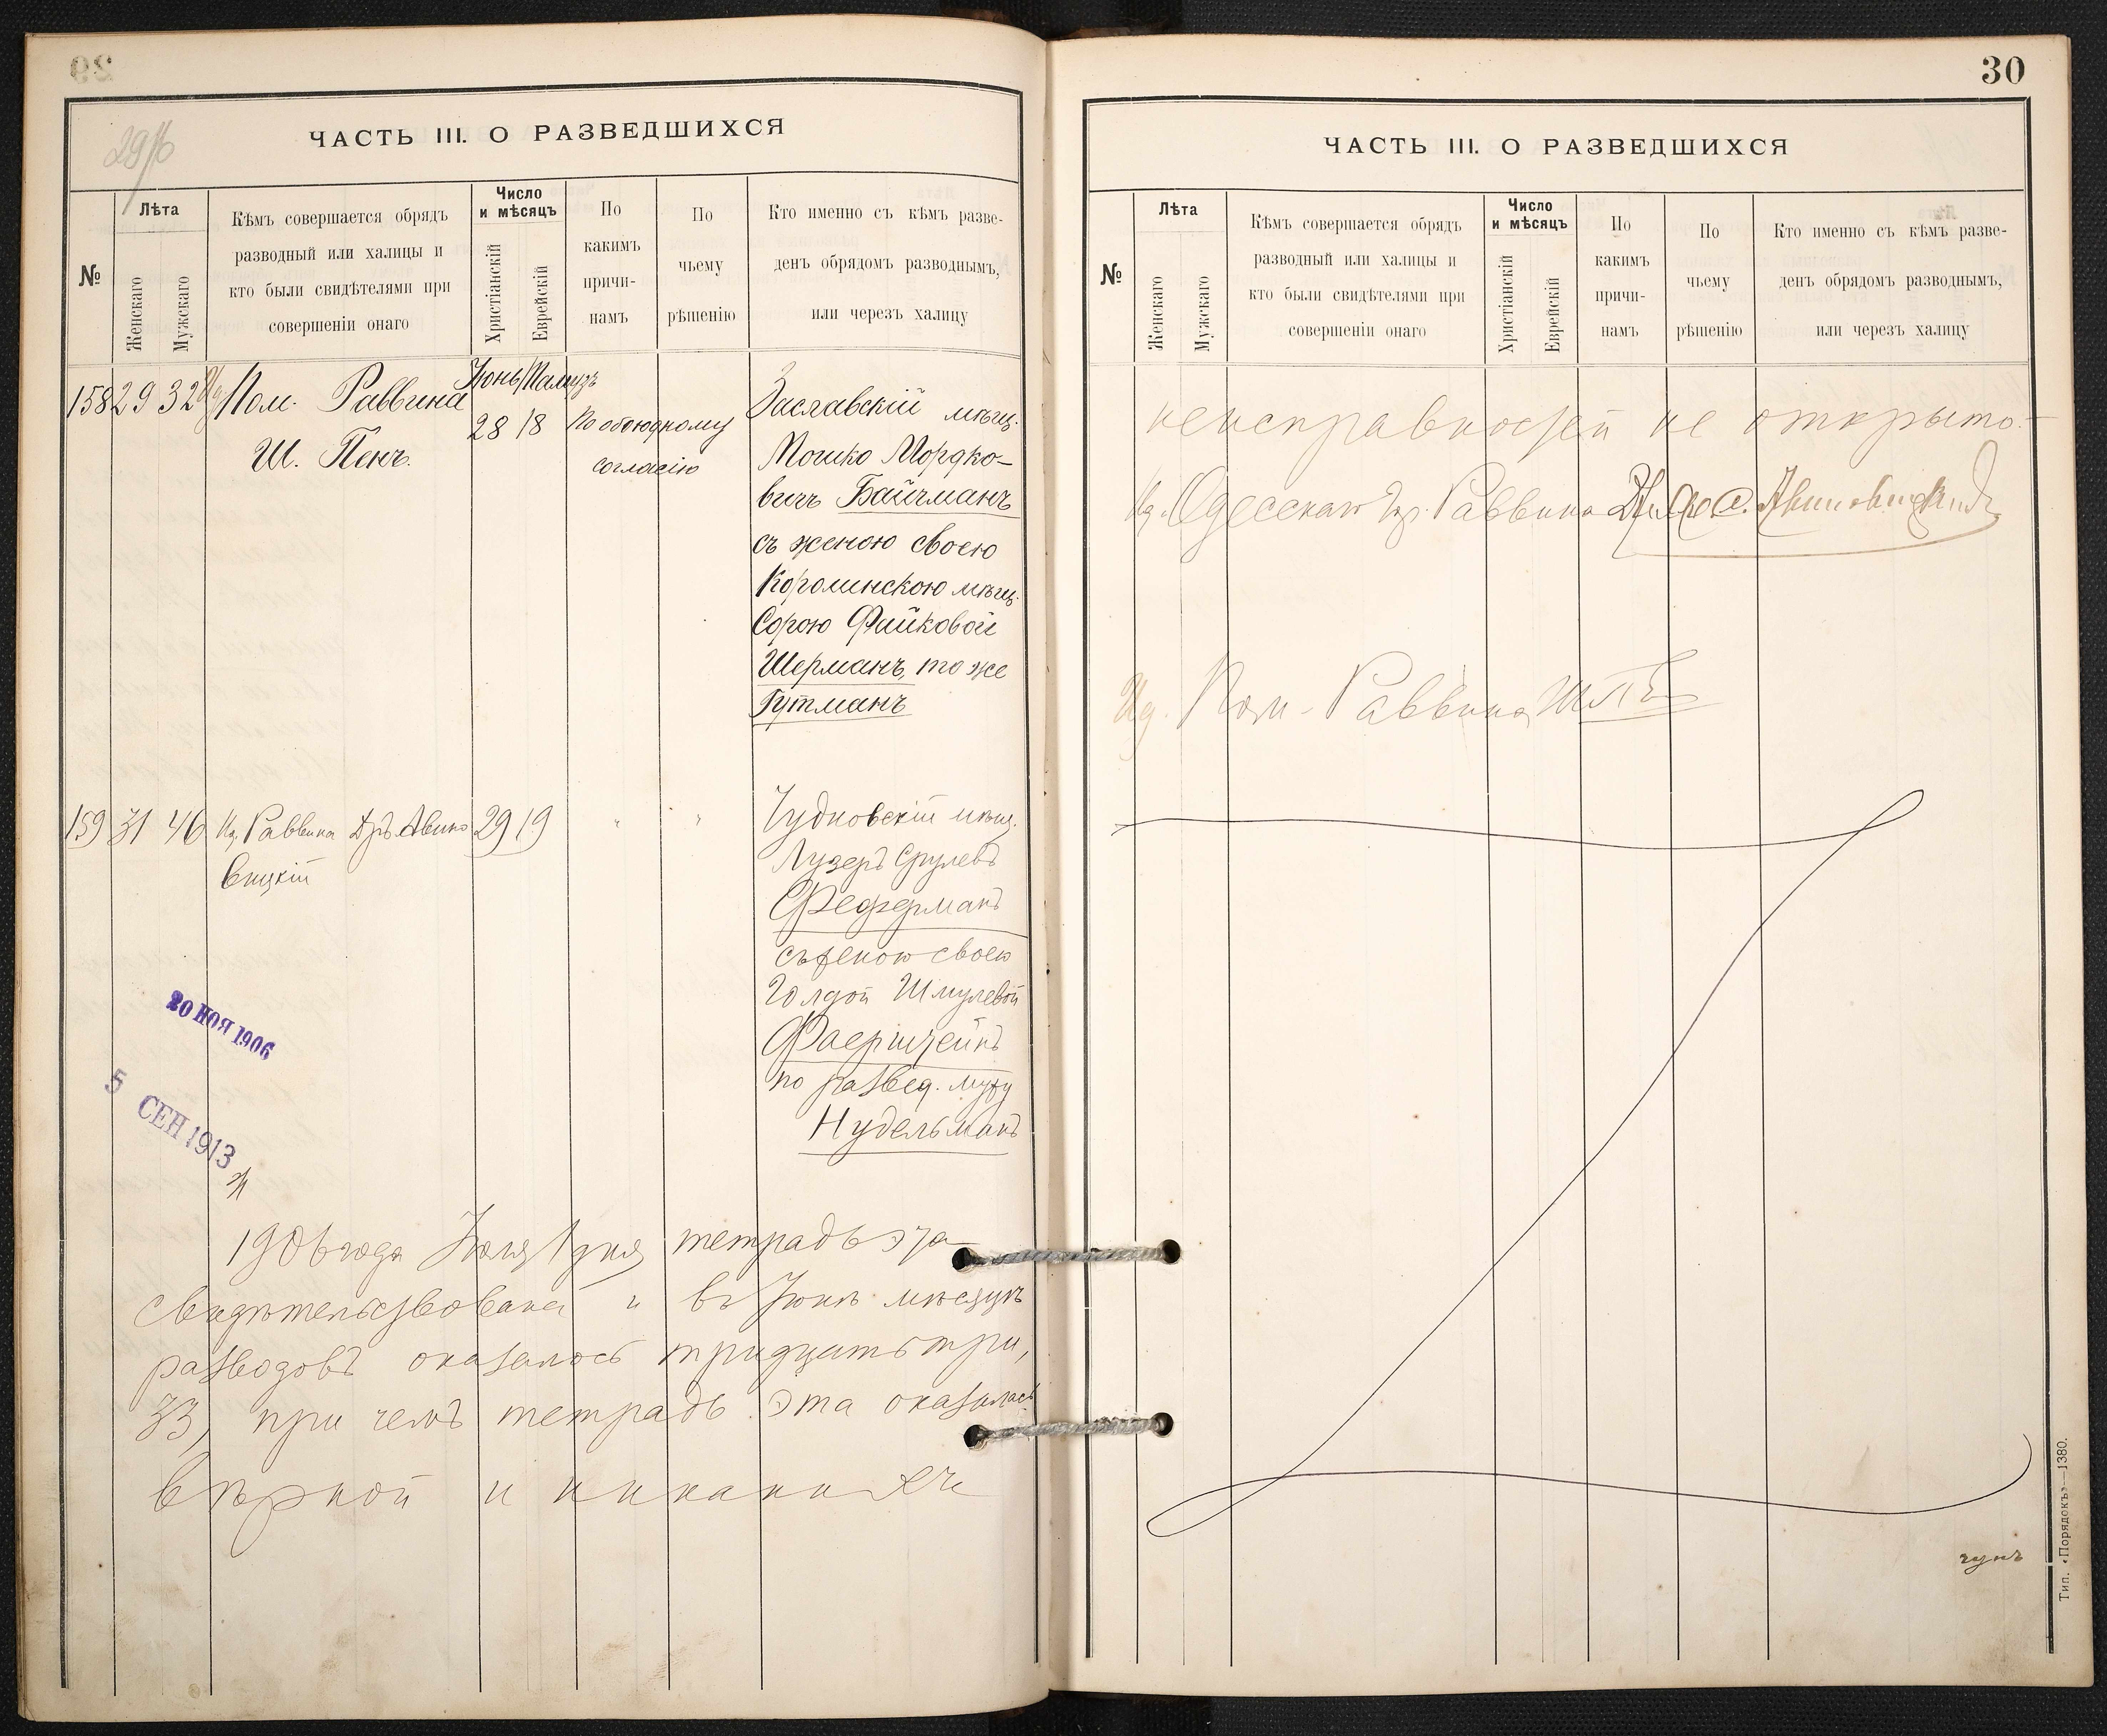 29
29/6
ЧАСТЬ III. О РАЗВЕДШИХСЯ
№
Лѣта
Женскаго
Мужскаго
Кѣмъ совершается обрядъ
разводный или халицы и
кто были свидѣтелями при
совершеніи онаго
Число
и мѣсяцъ
Христіанскій
Еврейскій
По
какимъ
причи-
намъ
По
чьему
рѣшенію
Кто именно съ кѣмъ разве-
денъ обрядомъ разводнымъ,
или черезъ халицу
158 29 32 Ид Пом. Раввина
Ш. Пенъ.
Іюнь Тамузъ
28 18
По обоюдному
согласію
Заславскій мѣщ.
Мошко Мордко-
вичъ Байчманъ
съ женою своею
мѣщ.
Сорою Файковой
Шерманъ, то же
Гутманъ
159 31 46 Ид. Раввина Д-ръ Авино
вицкій
29 19
" "
Чудновскій мѣщ.
Лузеръ Срулевъ
Федерманъ
съ женою своею
Голдой Шмулевой
Фаерштейнъ
по развед. мужу
Нудельманъ
20 НОЯ 1906
5 СЕН 1913
1906 года Іюля 1 дня тетрадь эта
свидѣтельствована и въ Іюнѣ мѣсяцѣ
разводовъ оказалось тридцать три,
33, при чемъ тетрадь эта оказалась
вѣрной и никакихъ
30
ЧАСТЬ III. О РАЗВЕДШИХСЯ
№
Лѣта
Женскаго
Мужскаго
Кѣмъ совершается обрядъ
разводный или халицы и
кто были свидѣтелями при
совершеніи онаго
Число
и мѣсяцъ
Христіанскій
Еврейскій
По
какимъ
причи-
намъ
По
чьему
рѣшенію
Кто именно съ кѣмъ разве-
денъ обрядомъ разводнымъ,
или черезъ халицу
неисправностей не открыто.-
Ид. Одесскаго Раввина
Ид. Пом. Раввина
Тип. «Порядокъ»—1380.